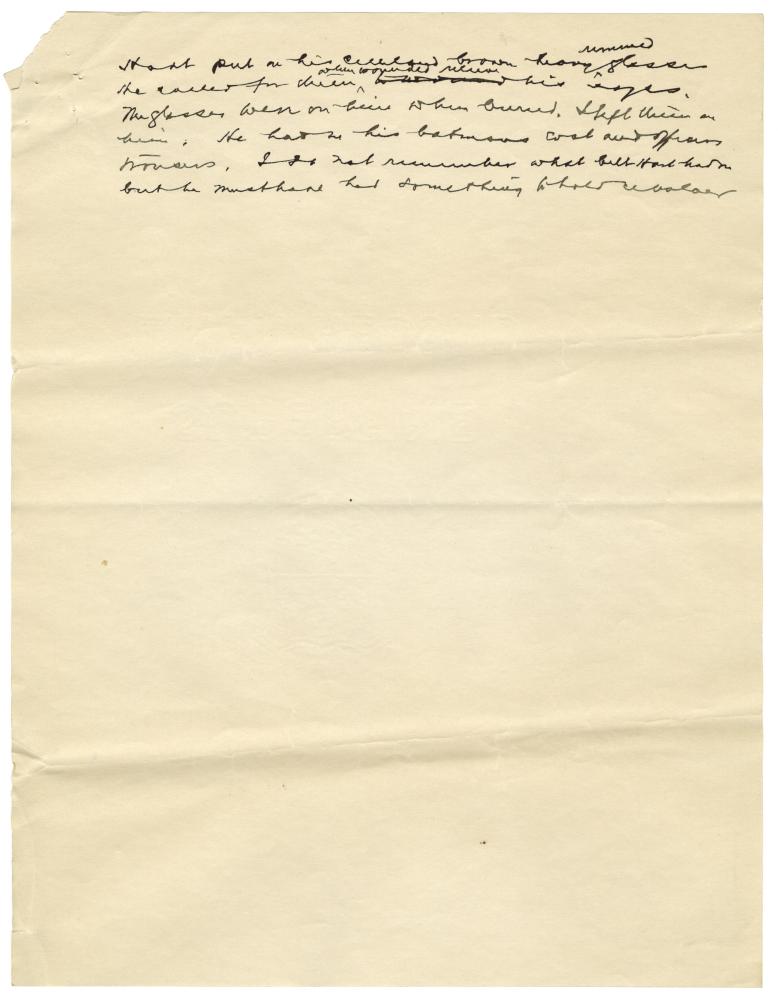 rimmed
Hart put on his celluloid brown heavy glasses
when wounded
He called for them his eyes.
The glasses were on him when buried. I left them on
him. He had on his batmans coat and officers
trousers. I do not remember what belt Hart had on
but he must have had something to hold revolver